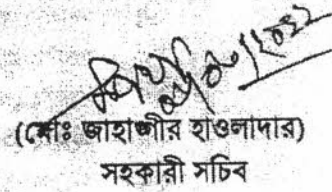 (মোঃ জাহাঙ্গীর হাওলাদার)
সহকারী সচিব